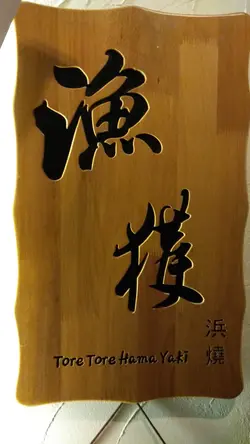 漁
獲
浜
燒
Tore Tore Hama Yaki